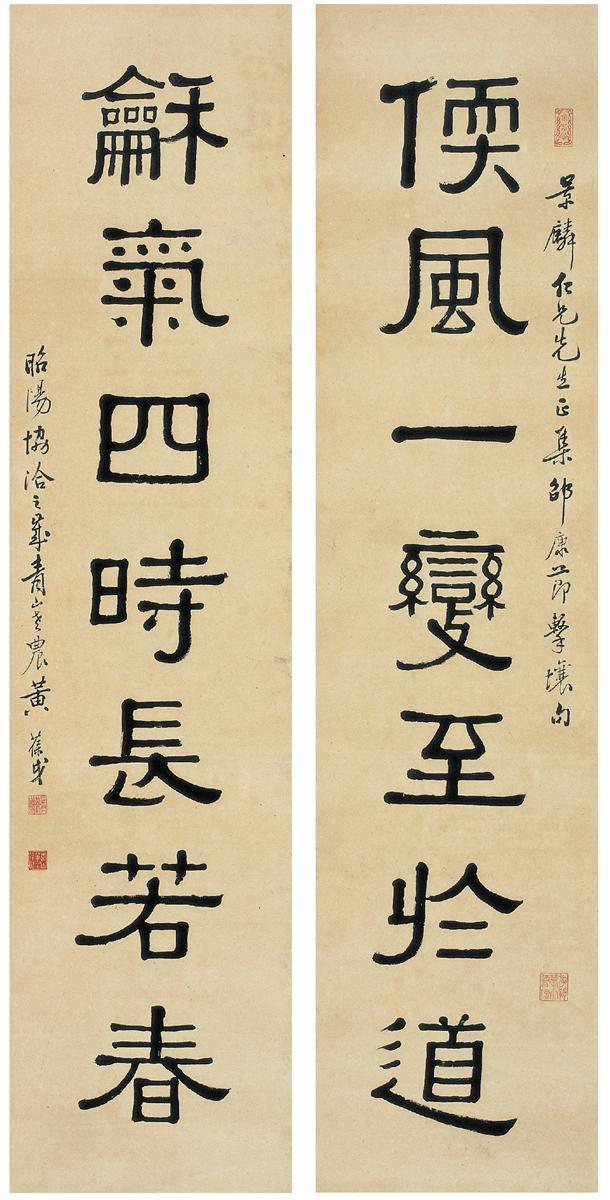 景麟仁兄先生正集邵康節擊壤句
偄風一變至於道
龢氣四時長若春
昭陽協洽之歲青山老農黃葆戉